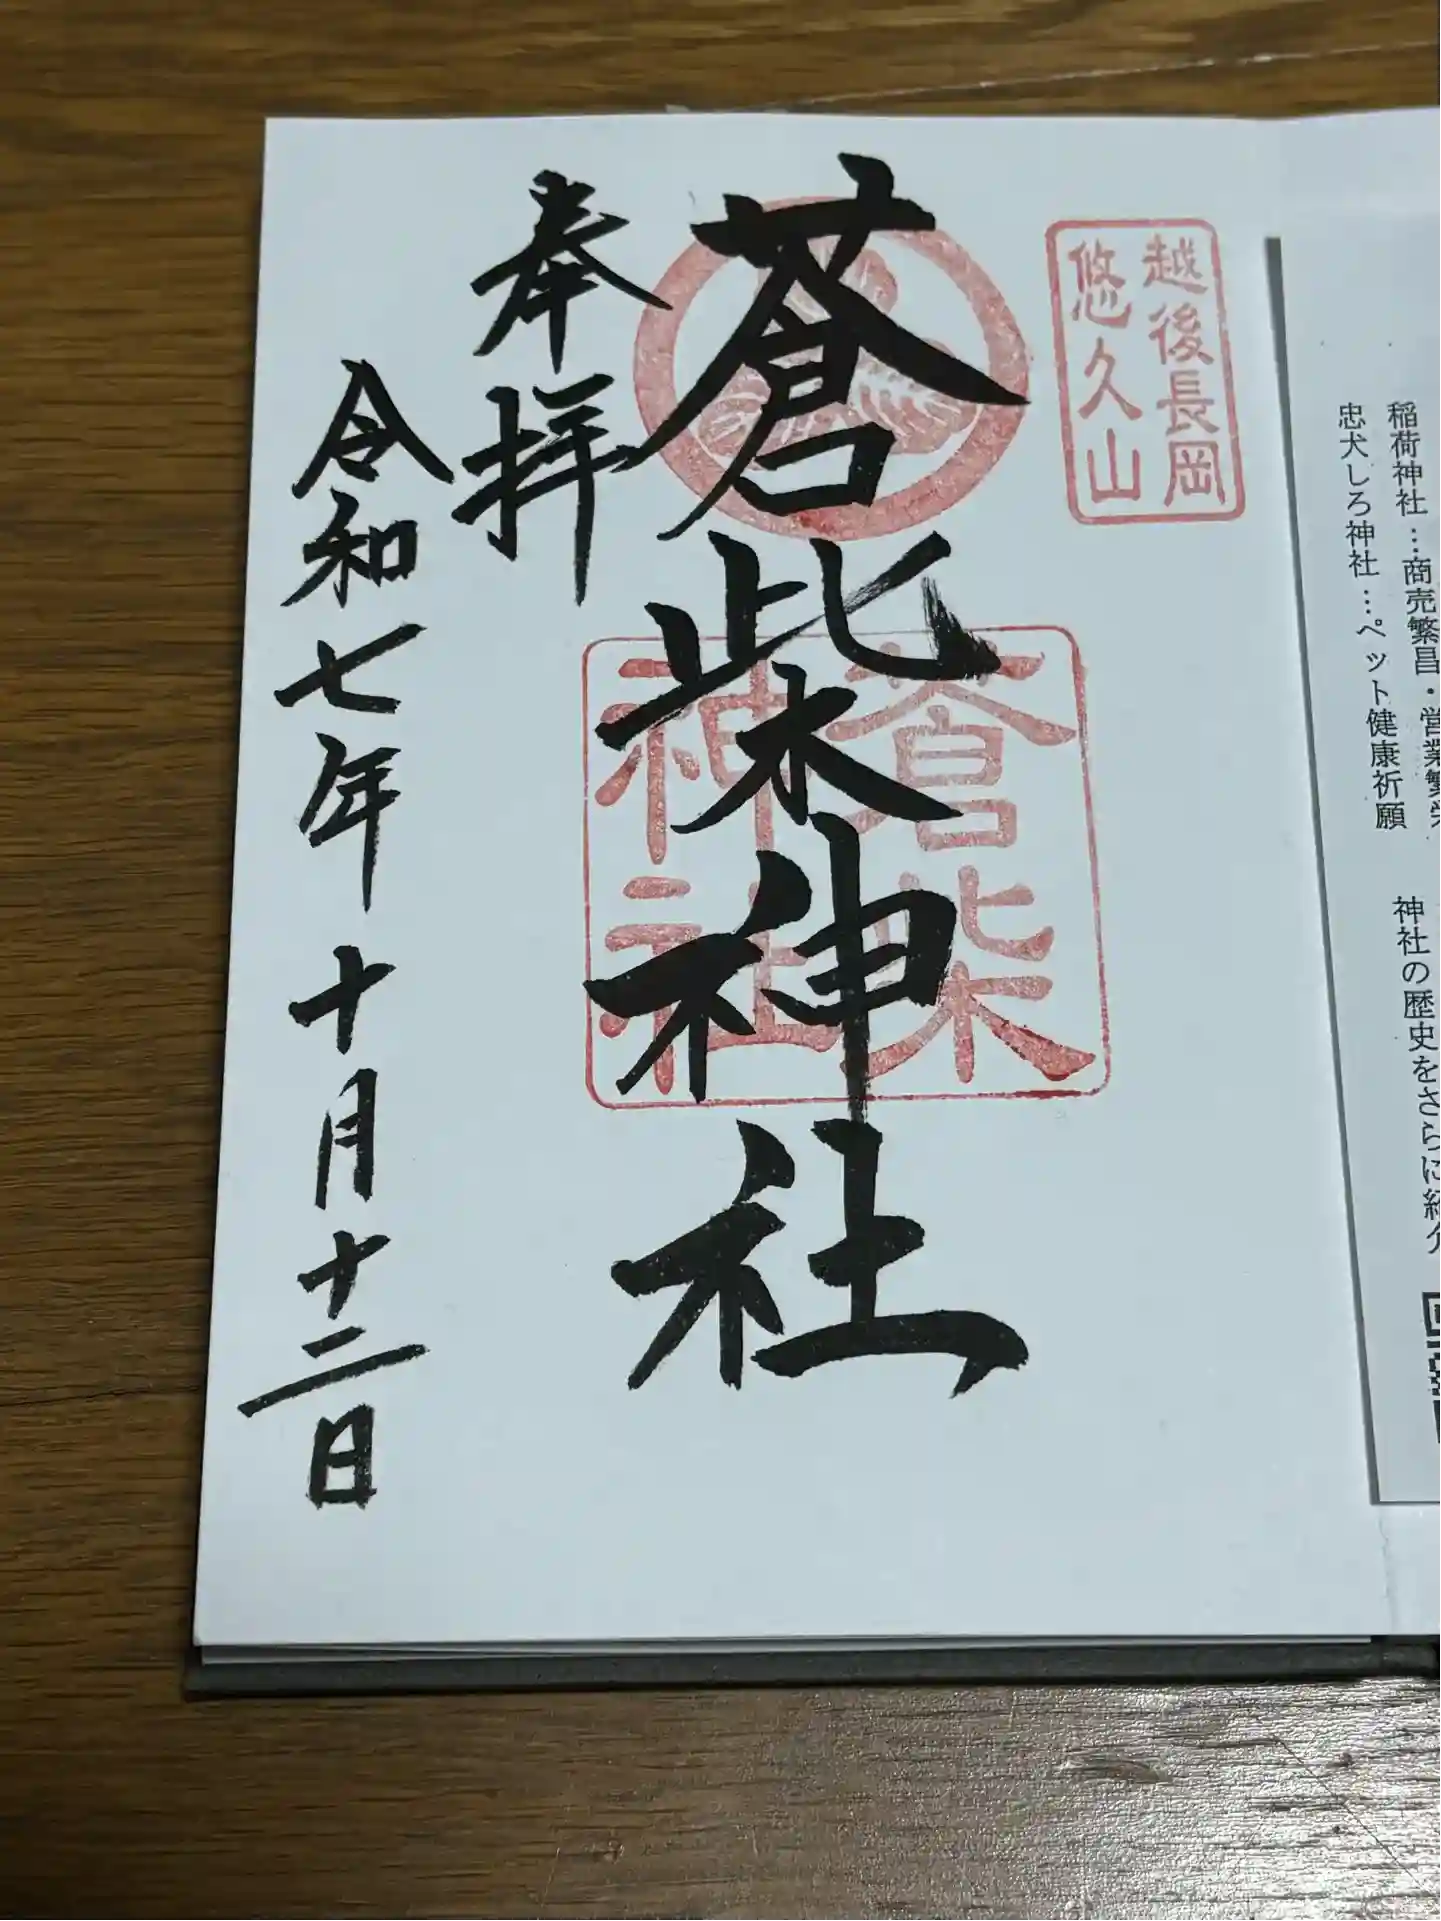 稲荷神社…商売繁昌・営業繁栄
忠犬しろ神社…ペット健康祈願
神社の歴史をさらに紹介
越後長岡
悠久山
蒼柴神社
蒼柴
神社
奉拝
令和七年十月十二日